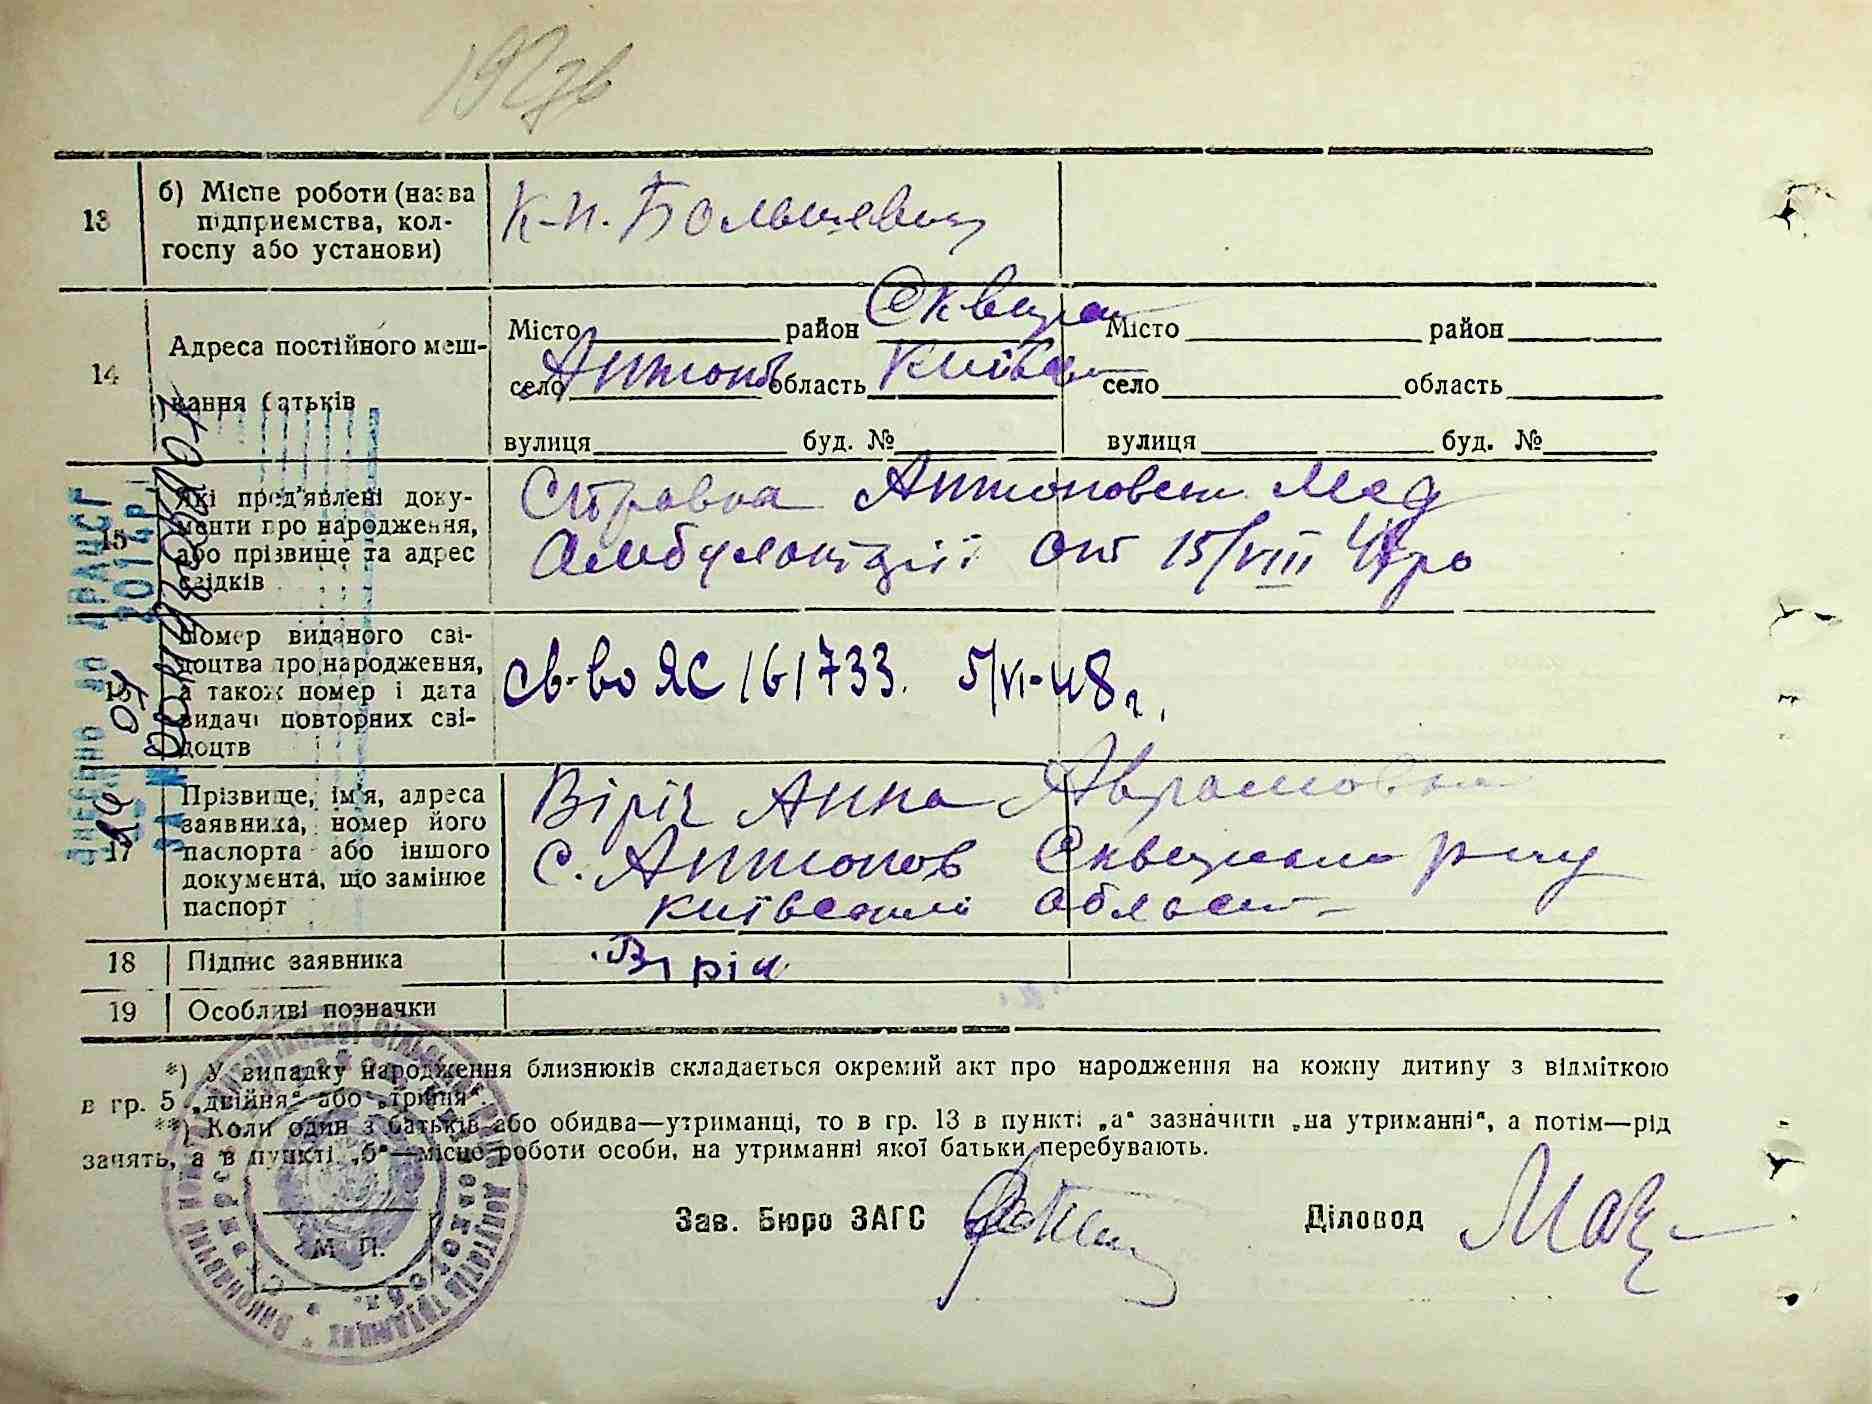 13
б) Місце роботи (назва
підприємства, кол-
госпу або установи)
К-п. Большевик
14
Адреса постійного меш-
кання батьків
Місто район Сквира
село Антонов область Київска
вулиця буд. №
Місто район
село область
вулиця буд. №
15
Які пред'явлені доку-
менти про народження,
або прізвище та адрес
свідків
Справка Антоновск. Мед
Амбулоторії от 15/VIII
16
Номер виданого сві-
доцтва про народження,
а також номер і дата
видачі повторних сві-
доцтв
Св-во ЯС 161733. 5/VI-48 г.
17
Прізвище, ім'я, адреса
заявника, номер його
паспорта або іншого
документа, що замінює
паспорт
Віріч Анна Аврамовна
с. Антонов Сквирськ р-ну
Київської області
18
Підпис заявника
Віріч
19
Особливі позначки
*) У випадку народження близнюків складається окремий акт про народження на кожну дитину з відміткою
в гр. 5 „двійня“ або „трійня“.
**) Коли один з батьків або обидва—утриманці, то в гр. 13 в пункті „а“ зазначити „на утриманні“, а потім—рід
занять, а в пункті „б“—місце роботи особи, на утриманні якої батьки перебувають.
Зав. Бюро ЗАГС
Діловод
М. П.
ВНЕСЕНО ДО ДРАЦСГ
2014 р.
ЗА №